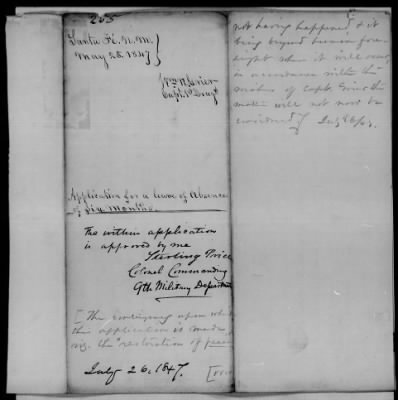 205
Santa Fé. N. M.
May 28. 1847
Wm N. Grier
Capt. 1st Drags
Application for a leave of Absence
of Six Months.
The within application
is approved by me
Sterling Price
Colonel Commanding
9th Military Department
[The contingency upon which
this application is made,
viz. the "restoration of peace
July 26, 1847.
not having happened & it
being beyond human fore-
sight when it will occur,
in accordance with the
wishes of Capt. Grier the
matter will not now be
considered]